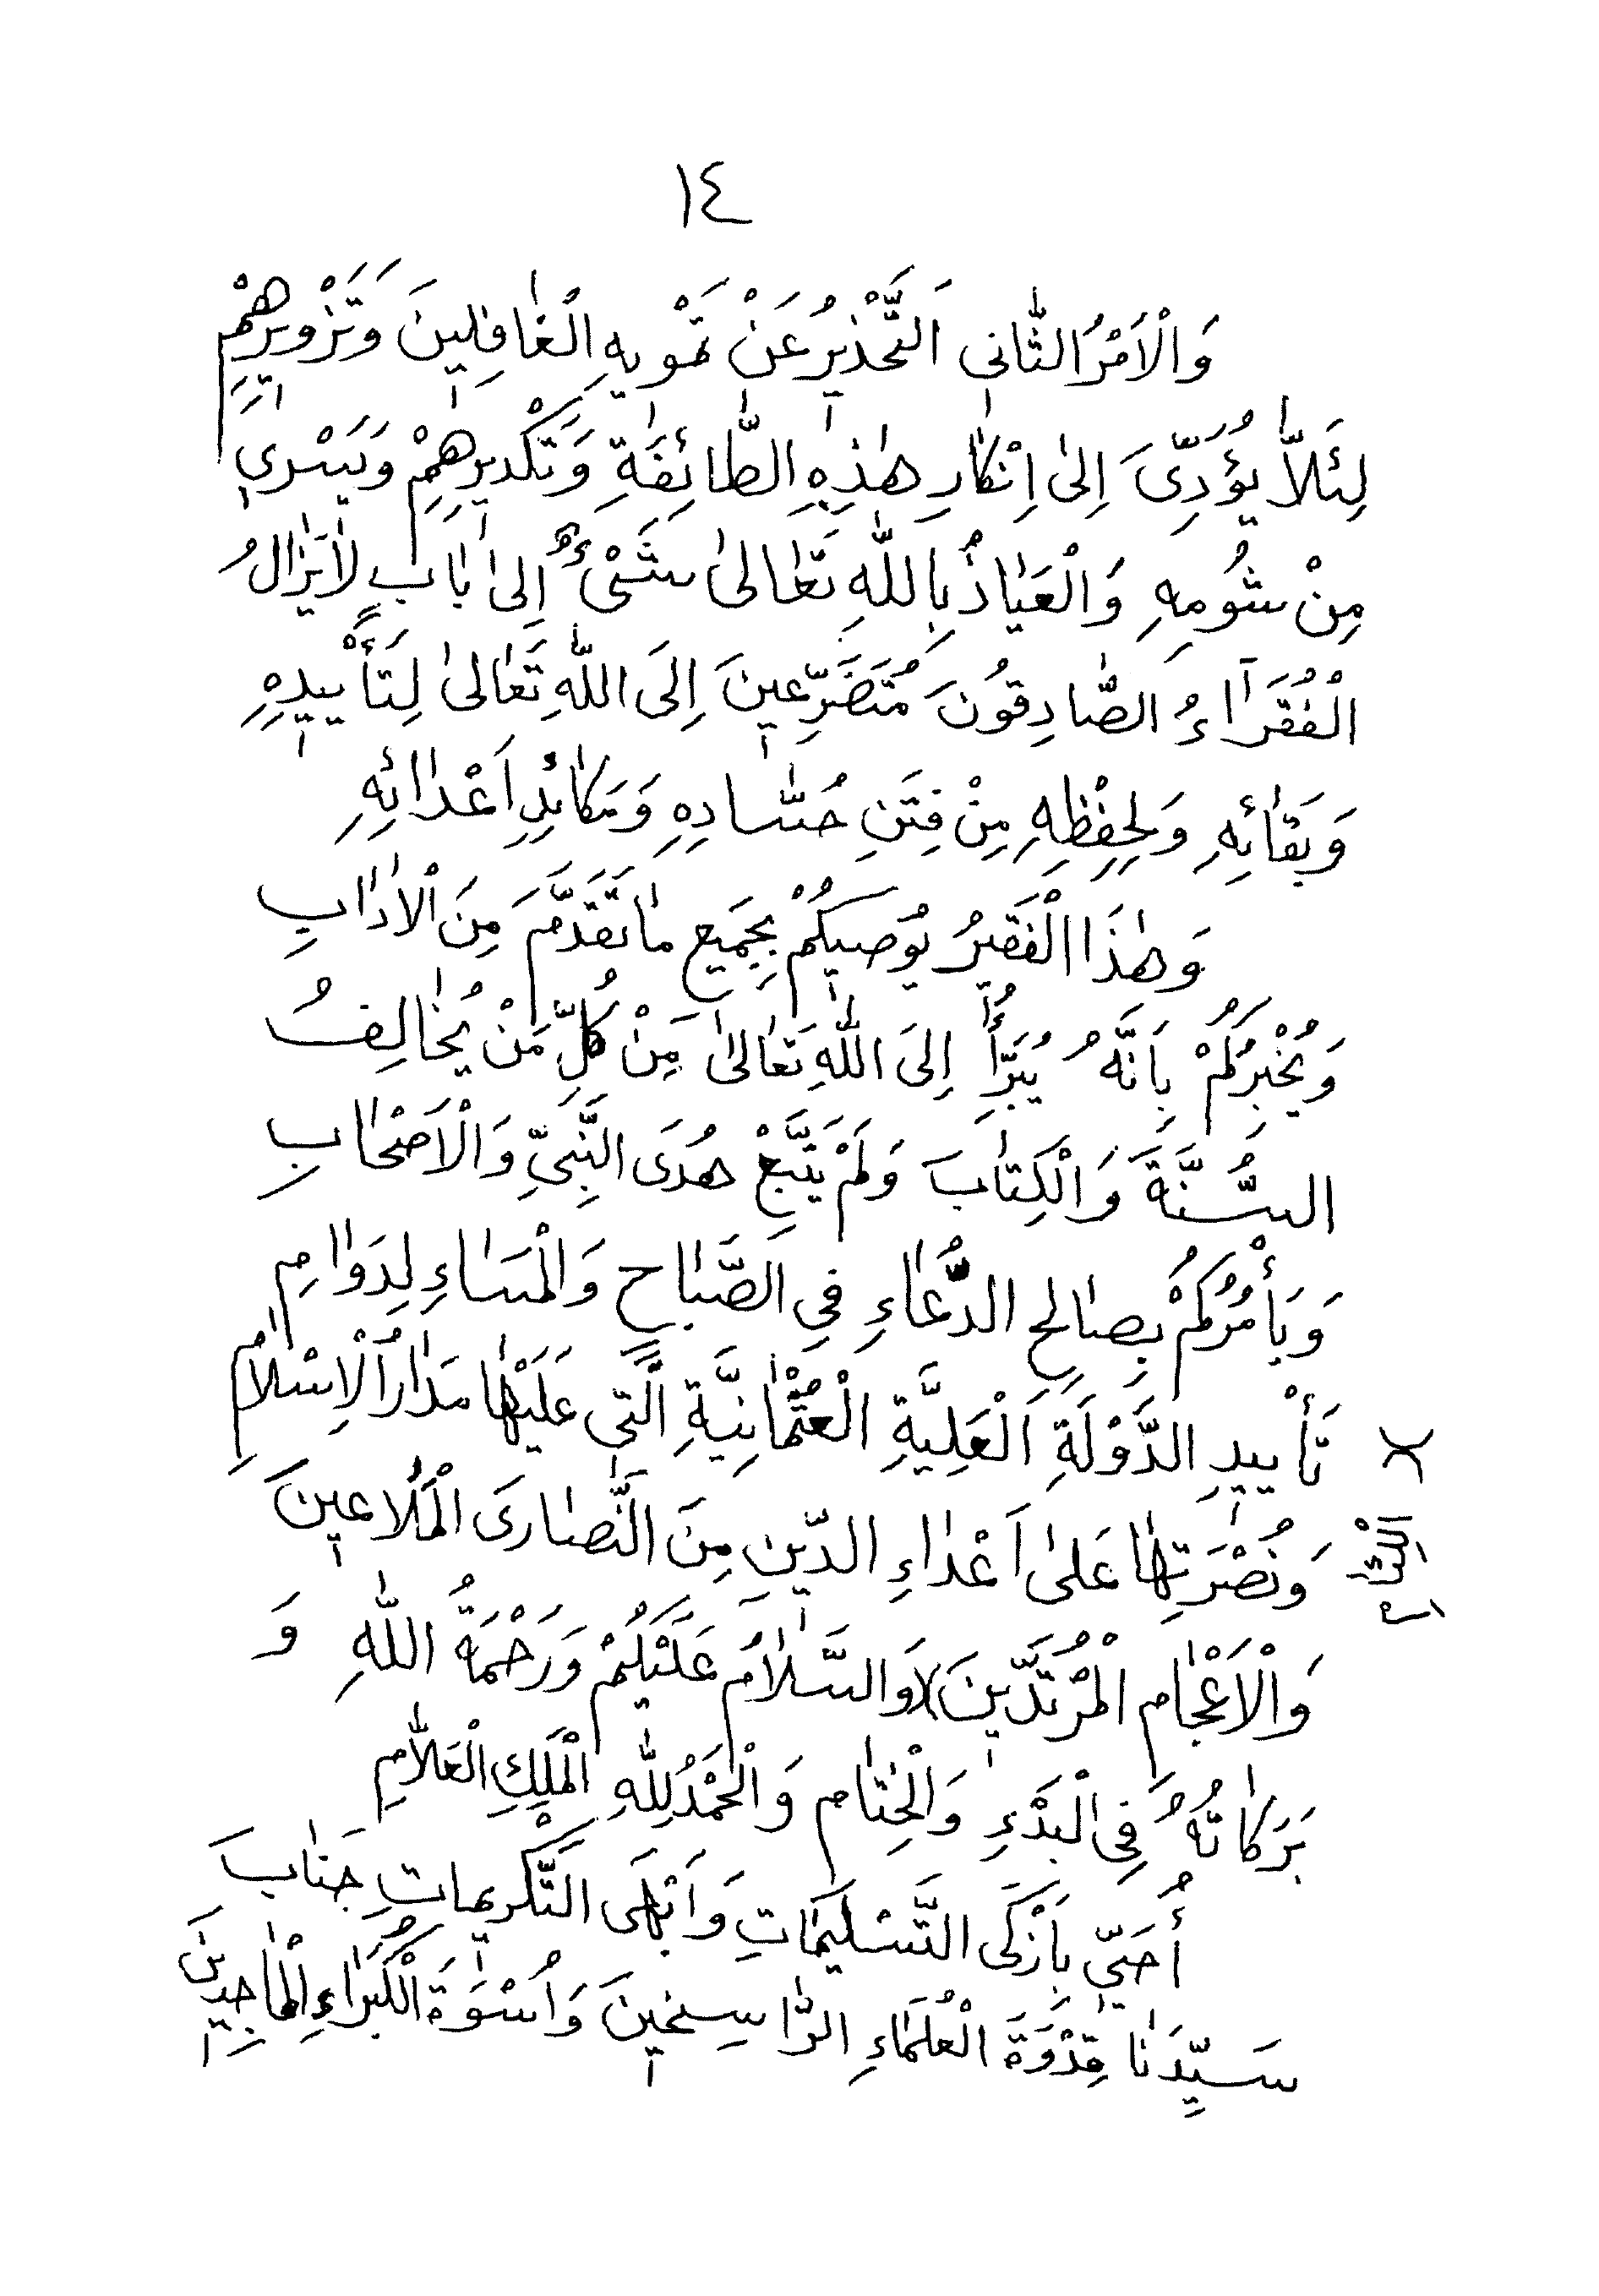 ١٤
وَالْاَمْرُ الثَّانى اَلتَّحْذيرُ عَنْ تَمْويهِ الْغَافِلينَ وَتَزْويرِهِمْ
لِئَلاَّ يُؤَدِّىَ اِلىٰ اِنْكَارِ هٰذِهِ الطَّائِفَةِ وَتَكْديرِهِمْ وَيَسْرى
مِنْ شُومِهِ وَالْعَيَاذُ بِاللّٰهِ تَعَالىٰ شَىْءٌ اِلىٰ بَابٍ لَايَزَالُ
الْفُقَرَاءُ الصَّادِقُونَ مُتَضَرِّعينَ اِلَى اللّٰهِ تَعَالىٰ لِتَأْييدِهِ
وَبَقَائِهِ وَلِحِفْظِهِ مِنْ فِتَنِ حُسَّادِهِ وَمَكَائِدِ اَعْدَائِهِ
وَهٰذَا الْفَقيرُ يُوصيكُمْ بِجَميعِ مَا تَقَدَّمَ مِنَ الْاٰدَابِ
وَيُخْبِرُكُمْ بِاَنَّهُ يُبَرَّأُ اِلَى اللّٰهِ تَعَالىٰ مِنْ كُلِّ مَنْ يُخَالِفُ
السُّنَّةَ وَالْكِتَابَ وَلَمْ يَتَّبِعْ هُدَى النَّبِىِّ وَالْاَصْحَابِ
وَيَأْمُرُكُمْ بِصَالِحِ الدُّعَاءِ فِى الصَّبَاحِ وَالْمَسَاءِ لِدَوَامِ
تَأْييدِ الدَّوْلَةِ الْعَلِيَّةِ الْعُثْمَانِيَّةِ الَّتى عَلَيْهَا مَدَارُ الْاِسْلَامِ
وَنُصْرَتِهَا عَلىٰ اَعْدَاءِ الدّينِ مِنَ النَّصَارَى الْمَلَاعينَ
وَالْاَعْجَامِ الْمُرْتَدّينَ) (وَالسَّلَامُ عَلَيْكُمْ وَرَحْمَةُ اللّٰهِ وَ
بَرَكَاتُهُ فِى الْبَدْءِ وَالْخِتَامِ وَالْحَمْدُ لِلّٰهِ الْمَلِكِ الْعَلَّامِ
أُحَيّى بِاَزْكَى التَّسْليمَاتِ وَاَبْهَى التَّكْريمَاتِ جَنَابَ
سَيِّدَنَا قِدْوَةَ الْعُلَمَاءِ الرَّاسِخينَ وَاُسْوَةَ الْكُبَرَاءِ الْمَاجِدينَ